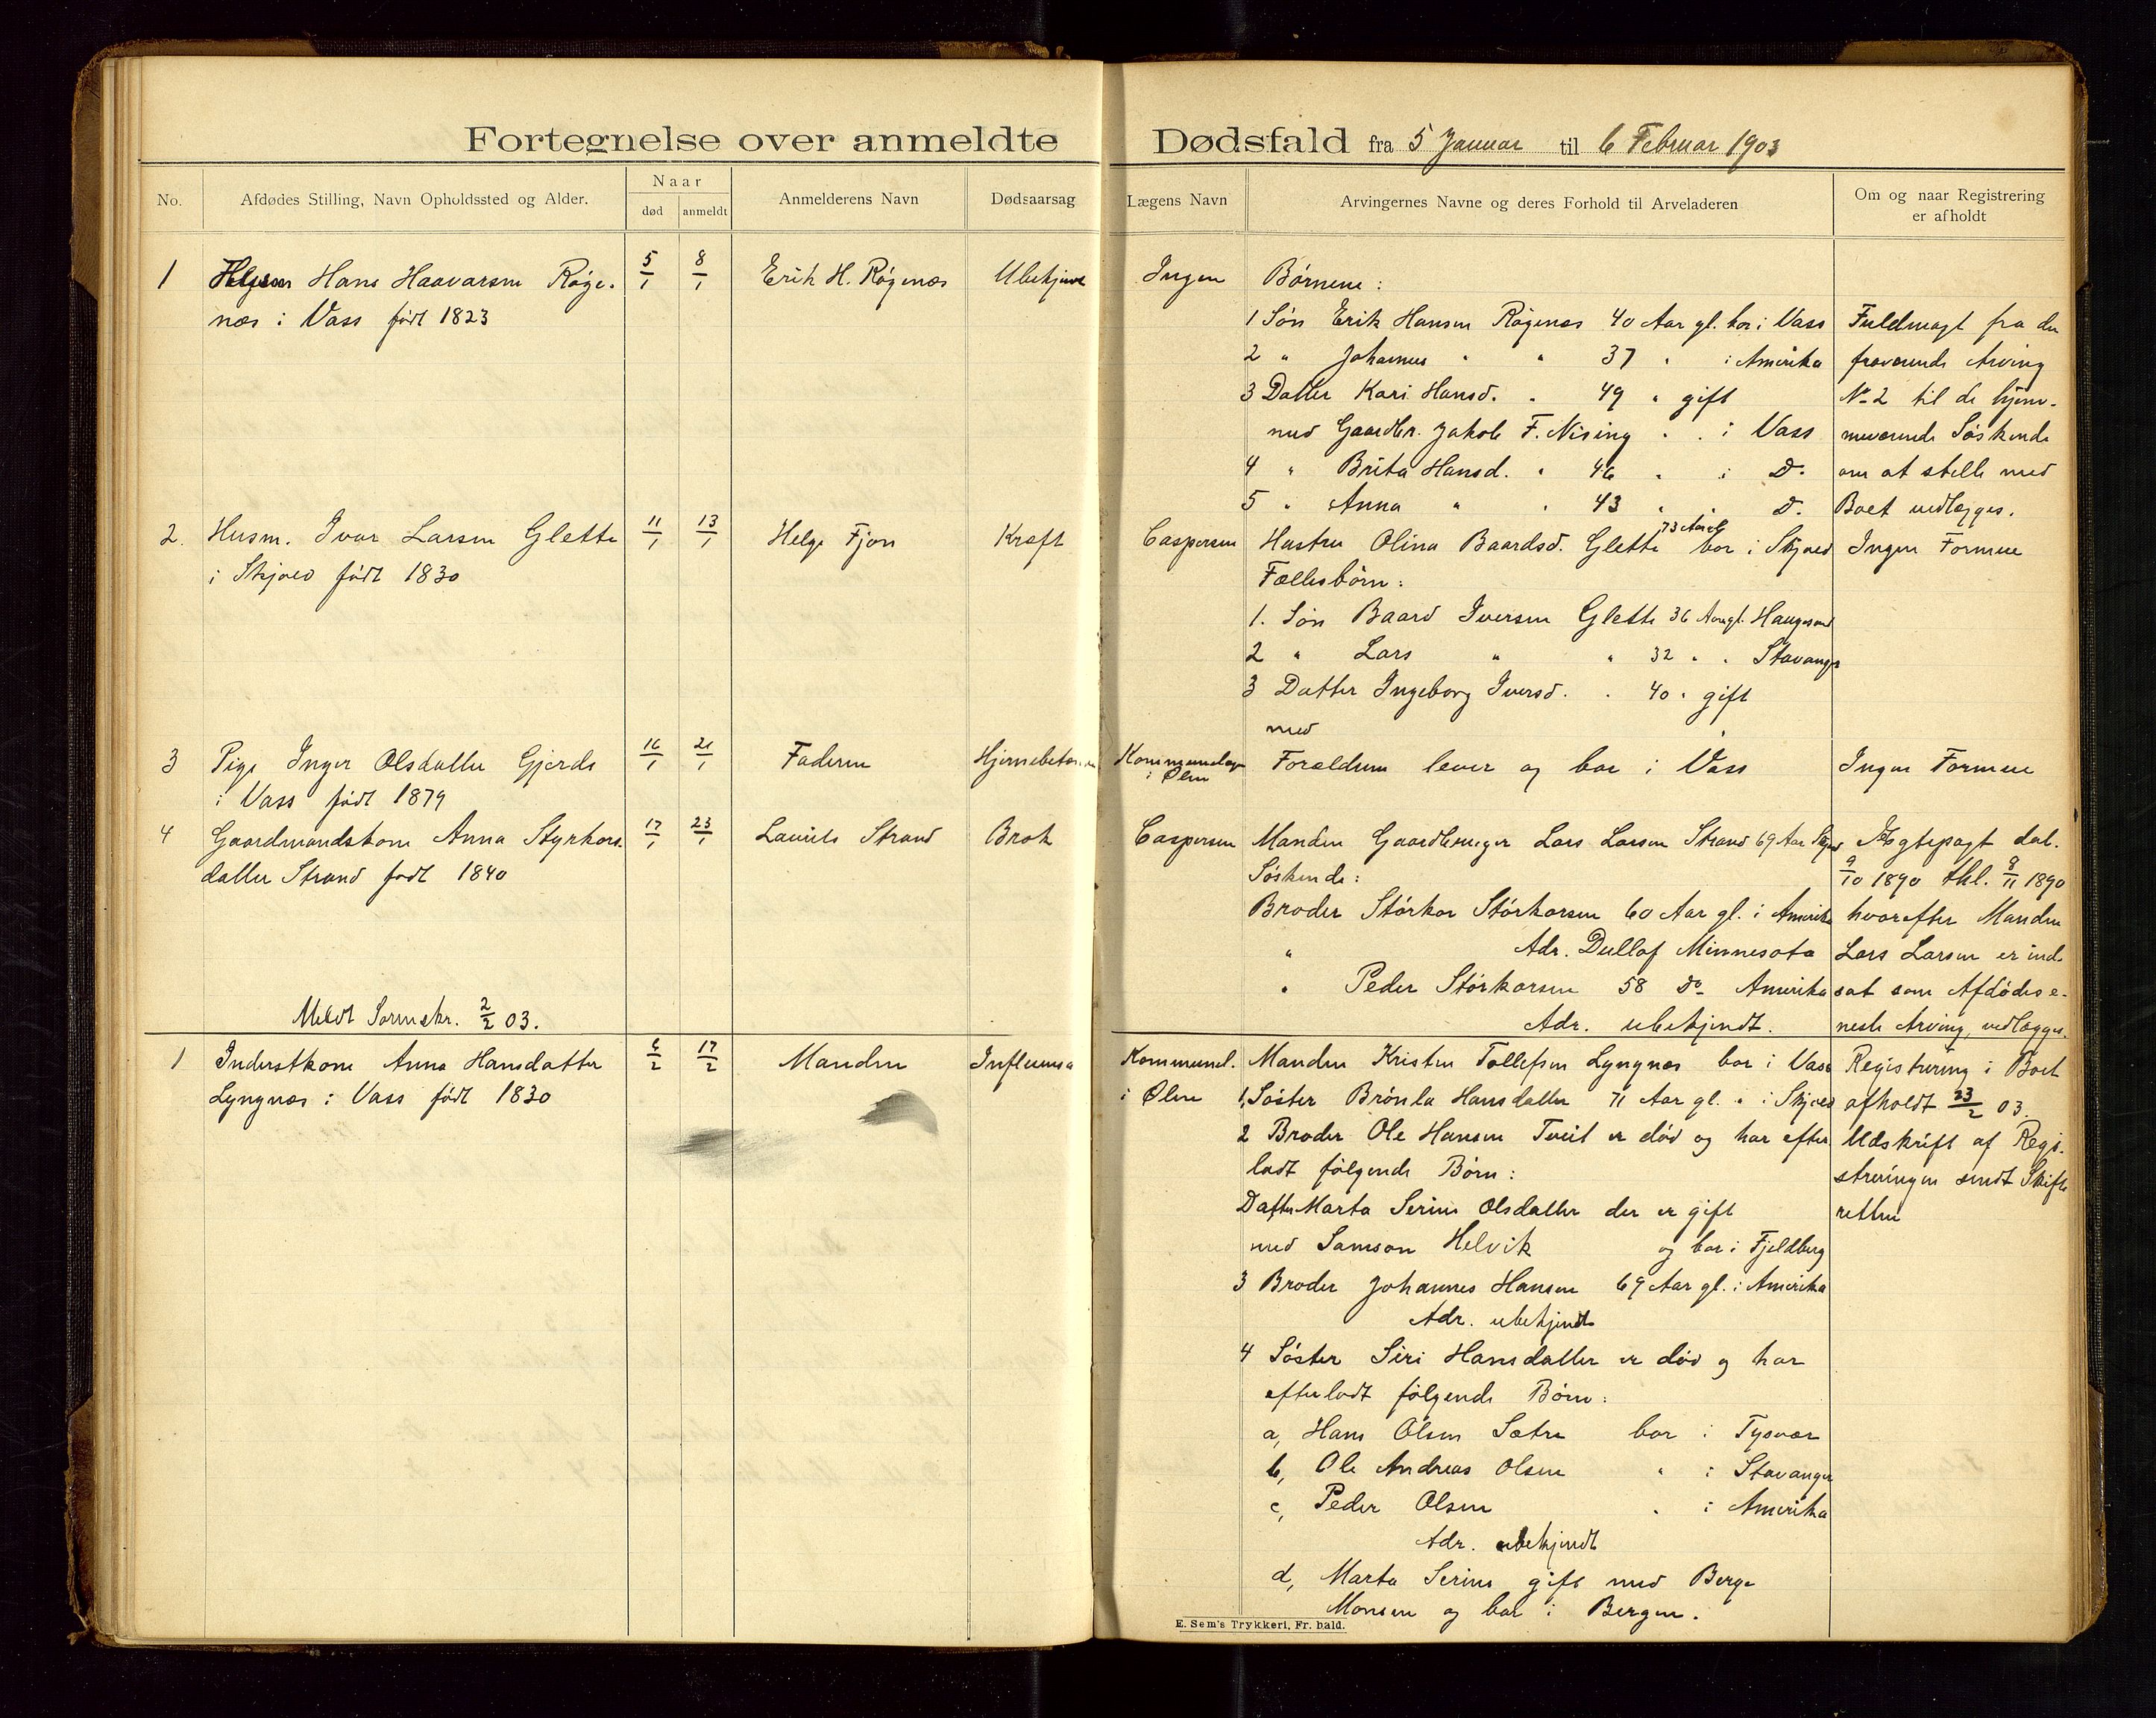 Fortegnelse over anmeldte Dødsfald fra 5 Januar til 6 Februar 1903
No.
Afdødes Stilling, Navn Opholdssted og Alder.
Naar
død
anmeldt
Anmelderens Navn
Dødsaarsag
Lægens Navn
Arvingernes Navne og deres Forhold til Arveladeren
Om og naar Registrering
er afholdt
1 Hans Haavarsen Røge-
næs i Vass født 1823
5/1
8/1
Erik H. Røgenæs
Ubekjendt
Ingen
Børnene:
1 Søn Erik Hansen Røgenæs 40 Aar gl. bor i Vass
2 " Johannes " " 37 " i Amerika
3 Datter Kari Hansd. " 49 " gift
med Gaardbr. Jakob F. Nising " " i Vass
4 " Brita Hansd. " 46 " i Do
5 " Anna " " 43 " " Do
Fuldmagt fra den
fraværende Arving
No 2 til de hjem-
meværende Søskende
om at stelle med
Boet vedlægges.
2. Husm. Ivar Larsen Glette
i Skjold født 1830
11/1
13/1
Helge Fjon
Kræft
Caspersen
Hustru Olina Baardsd. Glette 73 Aar gl bor i Skjold
Fællesbørn:
1. Søn Baard Iversen Glette 36 Aar gl. Haugesund
2 " Lars " " 32 " " Stavanger
3 Datter Ingeborg Iversd. " 40 " gift
med
Ingen Formue
3 Pige Inger Olsdatter Gjerde
i Vass født 1879
16/1
21/1
Faderen
Kommunelæge
i Ølen
Forældrene lever og bor i Vass
Ingen Formue
4 Gaardmandskone Anna Styrkors-
datter Strand født 1840
17/1
23/1
Laurits Strand
Brok
Caspersen
Manden Gaardbruger Lars Larsen Strand 69 Aar Skjold
Søskende:
Broder Störkor Störkorsen 60 Aar gl. i Amerika
" Adr. Dullof Minnesota
" Peder Störkorsen 58 Do Amerika
Adr. ubekjendt.
Ægtepagt dat.
9/10 1890 thl. 8/11 1890
hvorefter Manden
Lars Larsen er ind-
sat som Afdødes e-
neste Arving, vedlægges.
Meldt Sorenskr. 2/2 03.
1 Inderstkone Anna Hansdatter
Lyngnæs i Vass født 1830
6/2
17/2
Manden
Influensa
Kommunel.
i Ølen
Manden Kristen Tollefsen Lyngnæs bor i Vass
1, Søster Brönla Hansdatter 71 Aar gl. " i Skjold
2 Broder Ole Hansen Tveit er död og har efter-
ladt følgende Børn:
Datter Marta Serine Olsdatter der er gift
med Samson Helvik og bor i Fjeldberg
3 Broder Johannes Hansen 69 Aar gl. i Amerika
Adr. ubekjendt
4 Søster Siri Hansdatter er död og har
efterladt følgende Børn:
a, Hans Olsen Sætre bor i Tysvær
b, Ole Andreas Olsen " i Stavanger
c, Peder Olsen " i Amerika
Adr. ubekjendt
d, Marta Serine gift med Berge
Monsen og bor i Bergen.
Registrering i Boet
afholdt 23/2 03.
Udskrift af Regi-
streringen sendt Skifte-
retten
E. Sem's Trykkeri, Fr. hald.